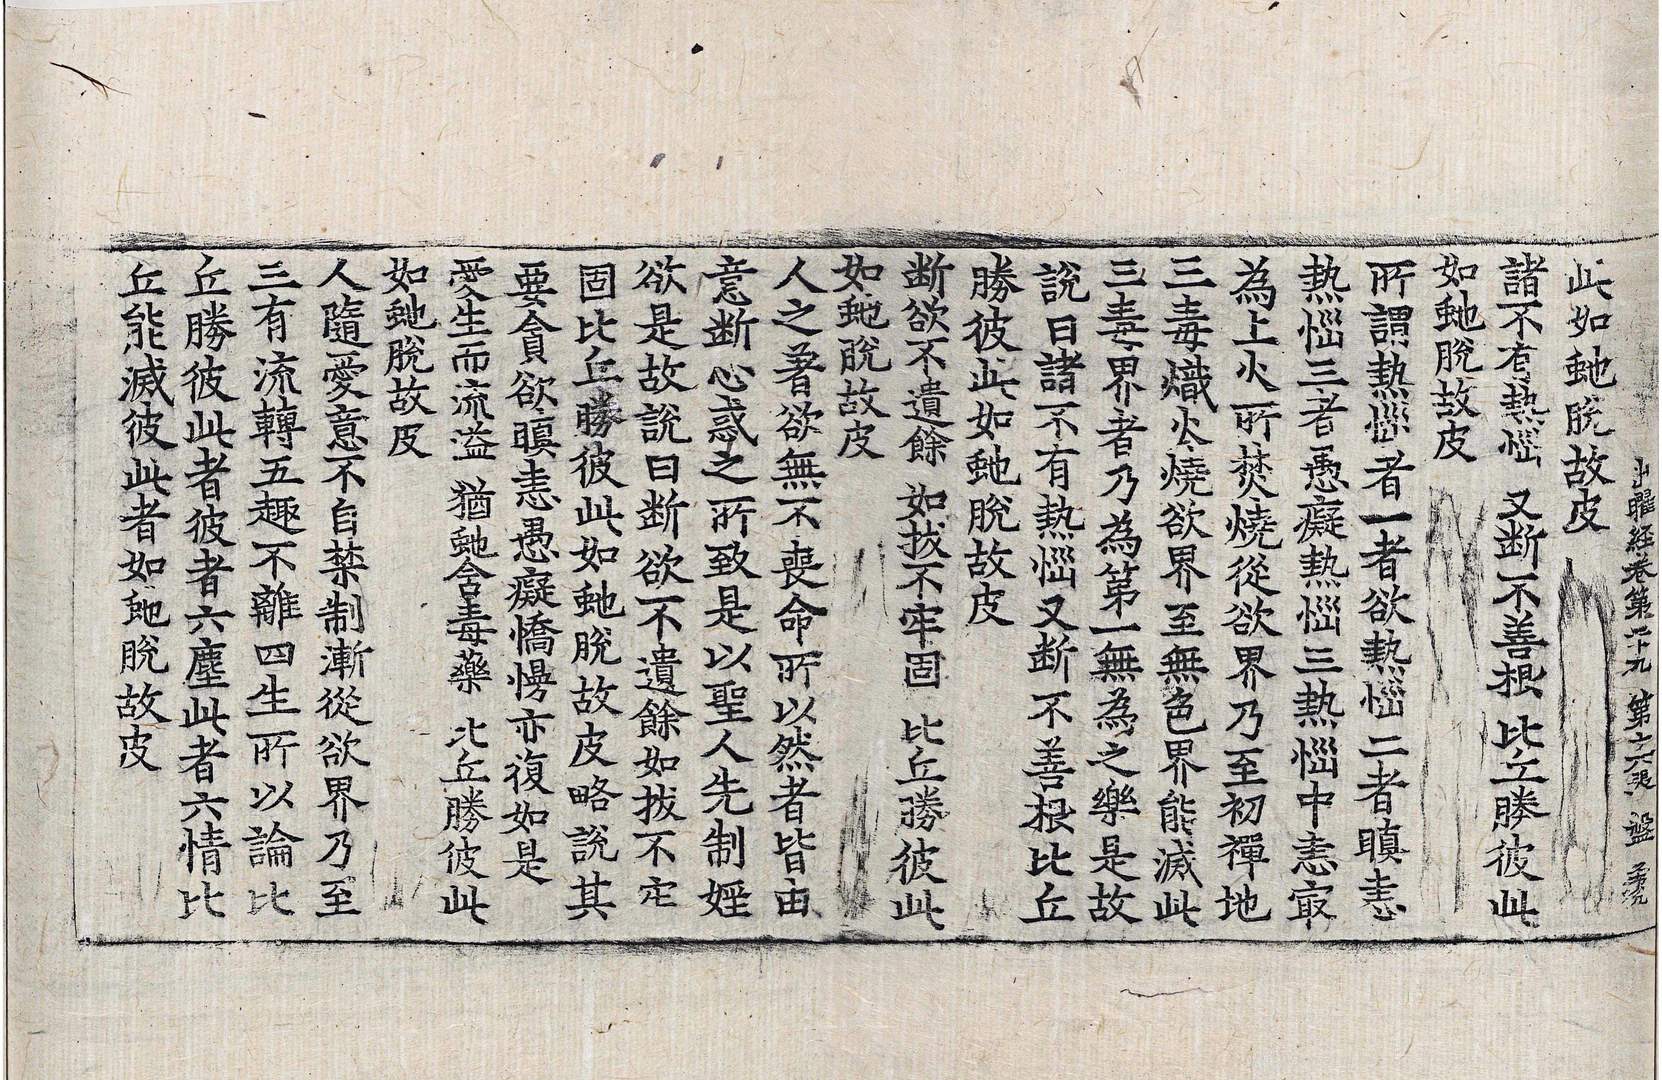 出曜經卷第二十九 第十六張 盤
此如虵脫故皮
諸不有熱惱 又斷不善根 比丘勝彼此
如虵脫故皮
所謂熱惱者一者欲熱惱二者瞋恚
熱惱三者愚癡熱惱三熱惱中恚㝡
為上火所焚燒從欲界乃至初禪地
三毒熾火燒欲界至無色界能滅此
三毒界者乃為第一無為之樂是故
說曰諸不有熱惱又斷不善根比丘
勝彼此如虵脫故皮
断欲不遺餘 如拔不牢固 比丘勝彼此
如虵脫故皮
人之著欲無不喪命所以然者皆由
意断心惑之所致是以聖人先制婬
欲是故說曰断欲不遺餘如拔不牢
固比丘勝彼此如虵脫故皮略說其
要貪欲瞋恚愚癡憍慢亦復如是
愛生而流溢 猶虵含毒藥 比丘勝彼此
如虵脫故皮
人隨愛意不自禁制漸從欲界乃至
三有流轉五趣不離四生所以論比
丘勝彼此者彼者六塵此者六情比
丘能滅彼此者如虵脫故皮